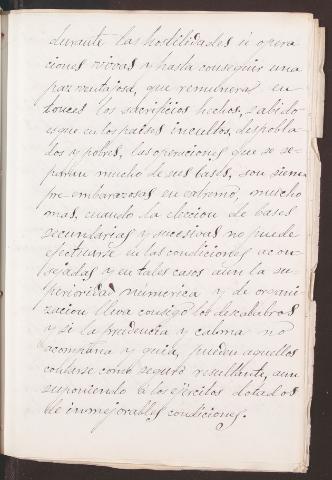 durante las hostilidades ú opera
ciones vivas y hasta conseguir una
paz ventajosa, que remunere en-
tonces los sacrificios hechos, sabido
es que en los países incultos, despobla
dos y pobres, las operaciones que se se-
paran mucho de sus bases, son siem
pre embarazosas en extremo; mucho
mas, cuando la eleccion de bases
secundarias y sucesivas no puede
efectuarse en las condiciones acon
sejadas y en tales casos aun la su-
perioridad númerica y de organi
zacion lleva consigo los descalabros
y si la prudencia y calma no
acompaña y guia, pueden aquellos
contarse como seguro resultante, aun
suponiendo á los ejércitos dotados
de inmejorables condiciones.